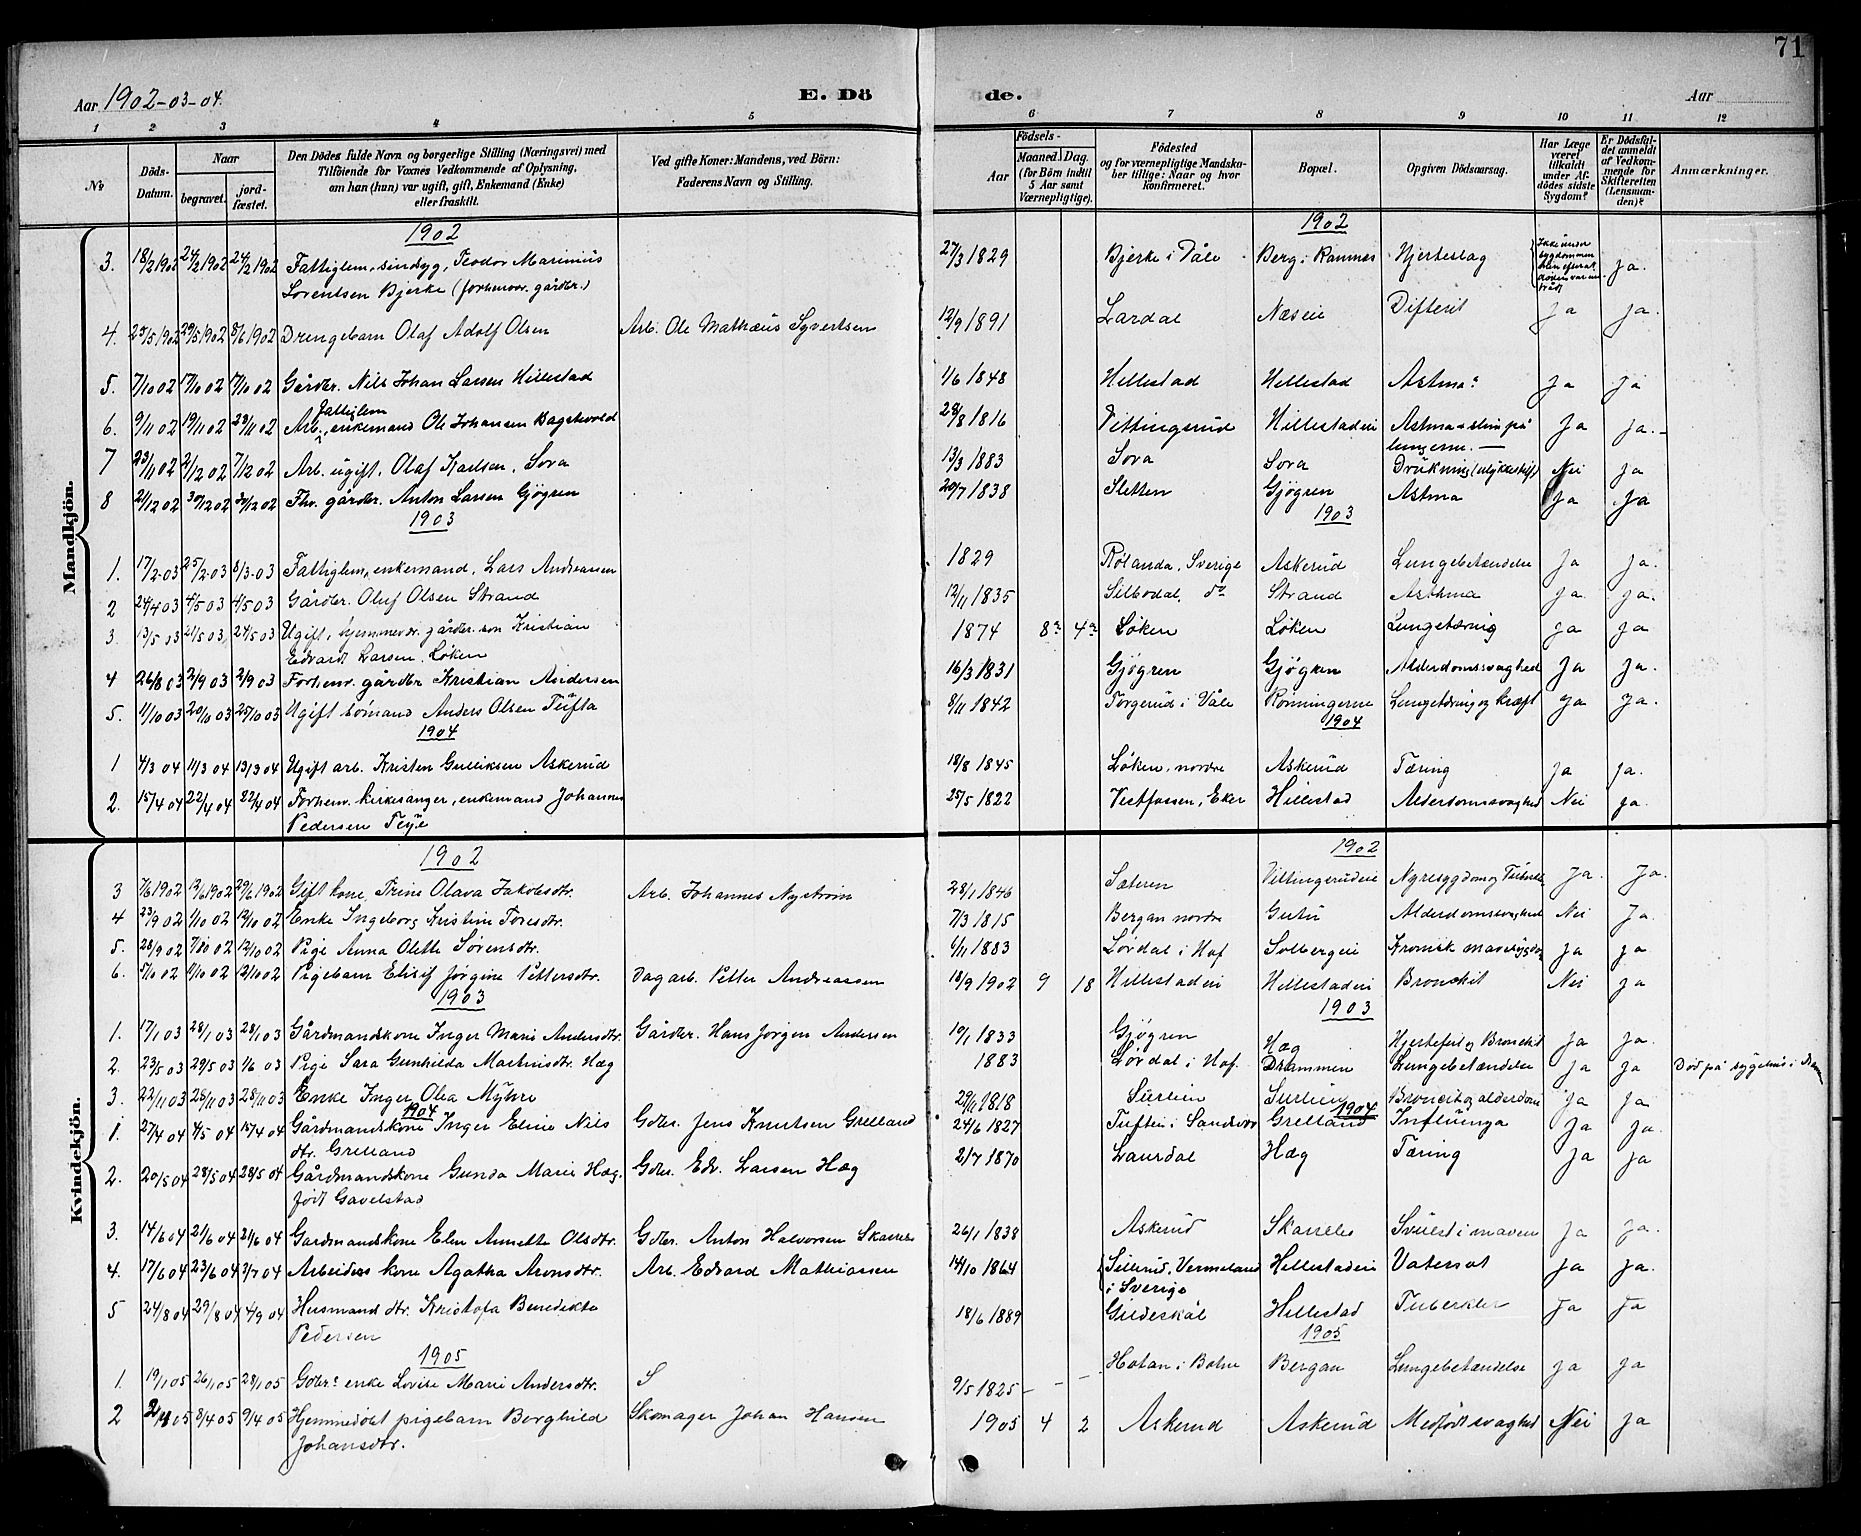 71
Aar 1902-03-04.
E. Dö
de.
Aar
1 2 3 4 5 6 7 8 9 10 11 12
No
Döds-Datum.
Naar
begravet.
jord-fæstet.
Den Dödes fulde Navn og borgerlige Stilling (Næringsvei) med
Tilföiende for Voxnes Vedkommende af Oplysning,
om han (hun) var ugift, gift, Enkemand (Enke)
eller fraskilt.
Ved gifte Koner: Mandens, ved Börn:
Faderens Navn og Stilling.
Födsels-
Aar
Maaned. Dag.
(for Börn indtil
5 Aar samt
Værnepligtige).
Födested
og for værnepligtige Mandska-
ber tillige: Naar og hvor
konfirmeret.
Bopæl.
Opgiven Dödsaarsag.
Har Læge
været
tilkaldt
under Af-
dödes sidste
Sygdom?
Er Dödsfal-
det anmeldt
af Vedkom-
mende for
Skifteretten
(Lensman-
den)?
Anmærkninger.
Mandkjön.
1902 1902
3. 18/2 1902 24/2 1902 24/2 1902 Fattiglem, sindsyg, Teodor Marinius 27/3 1829 Bjerke i Våle Berg i Ramnes Hjerteslag ja.
Lorentsen Bjerke (forhenvær. gårdbr.)
4. 25/5 1902 29/5 1902 8/6 1902 Drengebarn Olaf Adolf Olsen Arb. Ole Mathæus Syvertsen 12/9 1891 Lardal Næseie Difterit ja ja.
5. 7/10 02 17/10 02 17/10 02 Gårdbr. Nils Johan Larsen Hillestad 1/6 1848 Hillestad Hillestad Astma ja ja
Fattiglem
6. 9/11 02 19/11 02 23/11 02 Arb., enkemand Ole Johansen Bagstevold 28/8 1816 Vittingsrud Hillestadeie Astma + slim på ja ja.
lungerne.
7 23/11 02 2/12 02 7/12 02 Arb. ugift, Olaf Karlsen, Sora 13/3 1883 Sora Sora Drukning (ulykkestilf) Nei ja
8 21/12 02 30/12 02 30/12 02 Fhv. gårdbr. Anton Larsen Gjøgren 20/7 1838 Sletten Gjøgren Astma ja ja
1903 1903
1. 17/2-03 25/2-03 8/3-03 Fattiglem, enkemand, Lars Andreassen 1829 Rølanda, Sverige Askerud Lungebetændelse ja ja.
2 24/4 03 4/5 03 4/5 03 Gårdbr. Oluf Olsen Strand 12/11 1835 Silbodal, do Strand Asthma ja ja.
3. 13/5 03 21/5 03 24/5 03 Ugift, hjemmevær. gårdbr. søn Kristian 1874 8 4 Løken Løken Lungetæring ja ja
Edvardt Larsen Løken
4 26/8 03 2/9 03 2/9 03 Forhenv. gårdbr Kristian Andersen 16/3 1831 Gjøgren Gjøgren Alderdomssvaghed ja ja.
5. 11/10 03 20/10 03 25/10 03 Ugift sømand Anders Olsen Tufta 8/11 1842 Torgerud i Våle Rønningerne Lungetæring og kræft ja ja.
1904 1904
1 4/3 04 11/3 04 13/3 04 Ugift arb. Kristen Gulliksen Askerud 18/8 1845 Løken, nordre Askerud Tæring ja ja.
2. 15/4 04 22/4 04 22/4 04 Forhenv. kirkesanger, enkemand Johannes 25/5 1822 Vestfossen, Eker Hillestad Alderdomssvaghed Nei ja.
Pedersen Teye
Kvindekjön.
1902 1902
3 7/6 1902 12/6 1902 29/6 1902 Gift kone, Trine Olava Jakobsdtr. Arb. Johannes Nystrøm 28/1 1846 Sæteren Vittingsrudeie Nyresygdom og Tuberkl. Ja. Ja.
4 23/9 02 1/10 02 12/10 02 Enke Ingeborg Kristine Toresdtr. 7/3 1815 Bergan nordre Gutu Alderdomssvaghed Nei Ja.
5. 28/9 02 7/10 02 12/10 02 Pige Anna Olette Sørensdtr. 6/11 1883 Lørdal i Hof Solbergeie Kronisk mavesygdom ja ja
6. 5/10 02 11/10 02 12/10 02 Pigebarn Elisif Jørgine Pettersdtr. Dagarb. Petter Andreassen 18/9 1902 9 18 Hillestadeie Hillestadeie Bronchit Nei ja
1903 1903
1. 17/1 03 28/1 03 28/1 03 Gårdmandskone Inger Marie Andersdtr. Gårdbr. Hans Jørgen Andersen 19/1 1833 Gjøgren Hæg Hjertefeil og Bronchit ja ja.
2. 23/5 03 29/5 03 1/6 03 Pige Sara Gunhilda Martinsdtr. Hæg 1883 Lørdal i Hof Drammen Lungebetændelse ja ja Død på sygehus i Dram
3. 22/11 03 28/11 03 28/11 03 Enke Inger Olea Myhre 29/11 1818 Surleien Surleien Broncit og alderdom ja ja
1904 1904
1. 27/4 04 4/5 04 15/4 04 Gårdmandskone Inger Eline Nils Gdbr. Jens Knutsen Grelland 24/6 1827 Tuften i Sandsvær Grelland Influenza ja ja.
dtr. Grelland
2. 20/5 04 28/5 04 28/5 04 Gårdmandskone Gunda Marie Hæg Gdbr. Edv. Larsen Hæg 2/7 1870 Laurdal Hæg Tæring ja ja
født Gavelstad
3. 14/6 04 21/6 04 21/6 04 Gårdmandskone Elen Annette Olsdtr. Gdbr. Anton Halvorsen Skarrebo 26/1 1838 Askerud Skarrebo Svulst i maven ja ja.
4. 17/6 04 23/6 04 3/7 04 Arbeiders kone Agatha Aronsdtr. Arb. Edvard Mathiassen 14/10 1864 Sillerud, Vermeland Hillestadeie Vatersot ja ja.
i Sverige
5 24/8 04 29/8 04 4/9 04 Husmand dtr. Kristofa Benedikte 18/6 1889 Gildeskål Hillestad Tuberkler ja ja
Pedersen
1905 1905
1. 19/1 05 26/1 05 28/1 05 Gdbr. enke Lovise Marie Andersdtr. 9/5 1825 Hotan i Botne Bergan Lungebetændelse ja ja
2 2/4 05 8/4 05 9/4 05 Hjemmedøbt pigebarn Borghild Skomager Johan Hansen 1905 4 2 Askerud Askerud Medfødt svaghed Nei ja
Johansdtr.